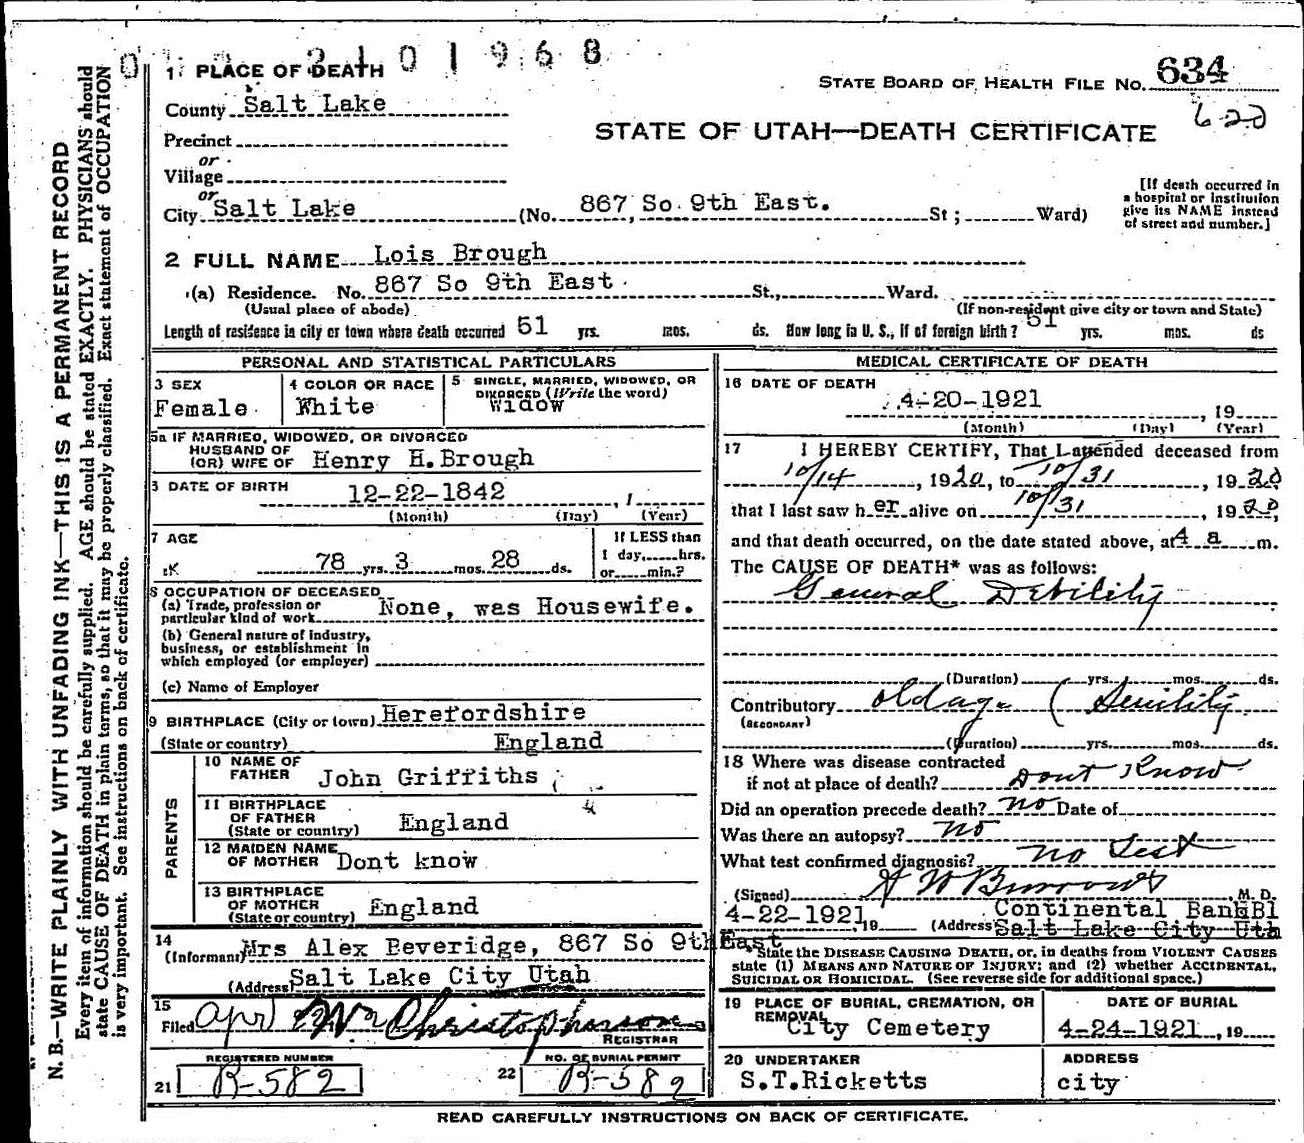 2101968
1 PLACE OF DEATH
STATE BOARD OF HEALTH FILE NO. 634
County Salt Lake
6-20
STATE OF UTAH—DEATH CERTIFICATE
Precinct
or
Village
or
City Salt Lake (No. 867 So 9th East. St; Ward)
[If death occurred in
a hospital or institution
give its NAME instead
of street and number.]
2 FULL NAME Lois Brough
(a) Residence. No. 867 So 9th East St., Ward.
(Usual place of abode) (If non-resident give city or town and State)
Length of residence in city or town where death occurred 51 yrs. mos. ds. How long in U. S., if of foreign birth? 51 yrs. mos. ds
PERSONAL AND STATISTICAL PARTICULARS
3 SEX
Female
4 COLOR OR RACE
White
5 SINGLE, MARRIED, WIDOWED, OR
DIVORCED (Write the word)
Widow
5a IF MARRIED, WIDOWED, OR DIVORCED
HUSBAND OF
(OR) WIFE OF Henry H.Brough
DATE OF BIRTH 12-22-1842, 1
(Month) (Day) (Year)
7 AGE
78 yrs. 3 mos. 28 ds.
If LESS than
1 day,......hrs.
or......min.?
8 OCCUPATION OF DECEASED
(a) Trade, profession or
particular kind of work None, was Housewife.
(b) General nature of industry,
business, or establishment in
which employed (or employer)
(c) Name of Employer
9 BIRTHPLACE (City or town) Herefordshire
(State or country) England
PARENTS
10 NAME OF
FATHER John Griffiths
11 BIRTHPLACE
OF FATHER
(State or country) England
12 MAIDEN NAME
OF MOTHER Dont know
13 BIRTHPLACE
OF MOTHER
(State or country) England
14
(Informant) Mrs Alex Beveridge, 867 So 9th East
(Address) Salt Lake City Utah
15
Filed Apr Wm Christopherson
REGISTRAR
REGISTERED NUMBER
21 R-582
NO. OF BURIAL PERMIT
22 R-582
MEDICAL CERTIFICATE OF DEATH
16 DATE OF DEATH
4-20-1921, 19
(Month) (Day) (Year)
17 I HEREBY CERTIFY, That I attended deceased from
10/14, 1920, to 10/31, 1920
that I last saw h er alive on 10/31, 1920,
and that death occurred, on the date stated above, at 4 a m.
The CAUSE OF DEATH* was as follows:
General Debility
(Duration) yrs. mos. ds.
Contributory old age (Senility
(SECONDARY)
(Duration) yrs. mos. ds.
18 Where was disease contracted
if not at place of death? Dont Know
Did an operation precede death? no Date of
Was there an autopsy? no
What test confirmed diagnosis? no test
(Signed) Burrows M. D.
4-22-1921, 19 (Address) Continental Bank Bl
Salt Lake City Utah
*State the DISEASE CAUSING DEATH, or, in deaths from VIOLENT CAUSES
state (1) MEANS AND NATURE OF INJURY; and (2) whether ACCIDENTAL,
SUICIDAL OR HOMICIDAL. (See reverse side for additional space.)
19 PLACE OF BURIAL, CREMATION, OR
REMOVAL
City Cemetery
DATE OF BURIAL
4-24-1921, 19
20 UNDERTAKER
S.T.Ricketts
ADDRESS
city
READ CAREFULLY INSTRUCTIONS ON BACK OF CERTIFICATE.
N. B.—WRITE PLAINLY WITH UNFADING INK—THIS IS A PERMANENT RECORD
Every item of information should be carefully supplied. AGE should be stated EXACTLY. PHYSICIANS should
state CAUSE OF DEATH in plain terms, so that it may be properly classified. Exact statement of OCCUPATION
is very important. See instructions on back of certificate.